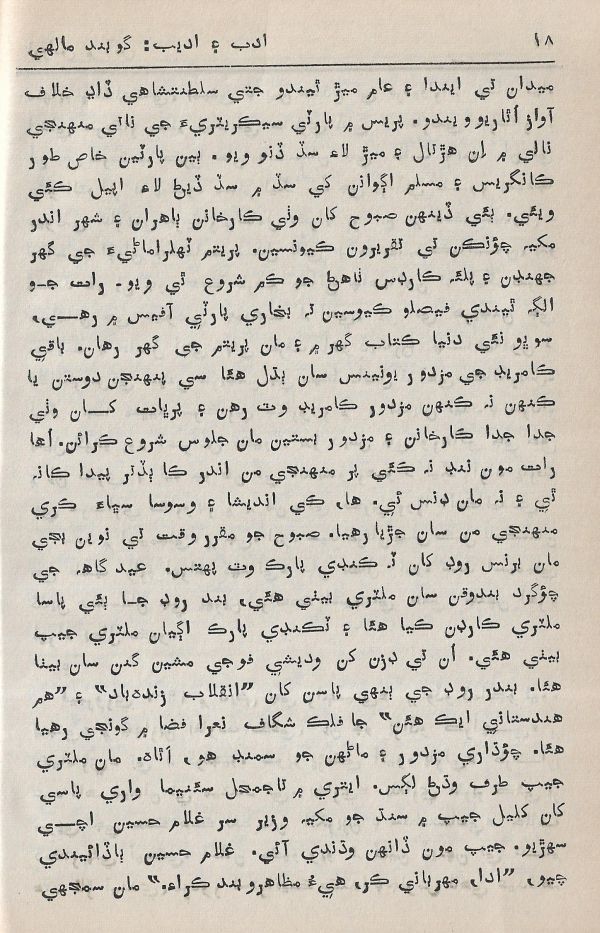 ١٨ ادب ۽ اديب: گوبند مالهي
ميدان تي ايندا ۽ عام ميڙ ٿيندو جتي سلطنتشاهي ڏاڍ خلاف
آواز اُٿاريو ويندو. پريس ۾ پارٽي سيڪريٽريءَ جي ناتي منهنجي
نالي ۾ اِن هڙتال ۽ ميڙ لاءِ سڏ ڏنو ويو. ٻين پارٽين خاص طور
ڪانگريس ۽ مسلم اڳوانن کي سڏ ۾ سڏ ڏيڻ لاءِ اپيل ڪئي
ويئي. ٻئي ڏينهن صبوح کان وٺي ڪارخانن ٻاهران ۽ شهر اندر
مکيه چؤنڪن تي تقريرون ڪيوسين. پريتم ٽهلراماڻيءَ جي گهر
جهنڊن ۽ پلئه ڪارڊس ٺاهڻ جو ڪم شروع ٿي ويو. رات جو
الڳه ٿيندي فيصلو ڪيوسين ته بخاري پارٽي آفيس ۾ رهي،
سوڀو نئي دنيا ڪتاب گهر ۾ ۽ مان پريتم جي گهر رهان. باقي
ڪامريڊ جي مزدور يونينس سان ٻڌل هئا سي پنهنجن دوستن يا
ڪنهن نه ڪنهن مزدور ڪامريڊ وٽ رهن ۽ پرڀات کان وٺي
جدا جدا ڪارخانن ۽ مزدور بستين مان جلوس شروع ڪرائن. اُها
رات مون ننڊ نه ڪئي پر منهنجي من اندر ڪا ٻڏتر پيدا ڪانه
ٿي ۽ نه مان ڊنس ئي. ها، ڪي انديشا ۽ وسوسا سڀاءَ ڪري
منهنجي من سان جڙيا رهيا. صبوح جو مقرر وقت تي نوين بجي
مان برنس روڊ کان ٿ ڪنڊي پارڪ وٽ پهتس. عيد گاهه جي
چؤگرد بندوقن سان ملٽري بيٺي هئي، بند روڊ جا ٻئي پاسا
ملٽري ڪارڊن ڪيا هئا ۽ ٽڪنڊي پارڪ اڳيان ملٽري جيپ
بيٺي هئي. اُن تي ڊزن کن وديشي فوجي مشين گنن سان بيٺا
هئا. بندر روڊ جي ٻنهي پاسن کان ”انقلاب زنده‌باد“ ۽ ”هم
هندستاني ايڪ هئن“ جا فلڪ شگاف نعرا فضا ۾ گونجي رهيا
هئا. چؤڌاري مزدور ۽ ماڻهن جو سمنڊ هو، اَٿاهه. مان ملٽري
جيپ طرف وڌڻ لڳس. ايتري ۾ تاجمحل سئنيما واري پاسي
کان کليل جيپ ۾ سنڌ جو مکيه وزير سر غلام حسين اچي
سهڙيو. جيپ مون ڏانهن وڌندي آئي. غلام حسين ٻاڏائيندي
چيو، ”ادا، مهرباني ڪر، هيءُ مظاهرو بند ڪراءِ.“ مان سمجهي